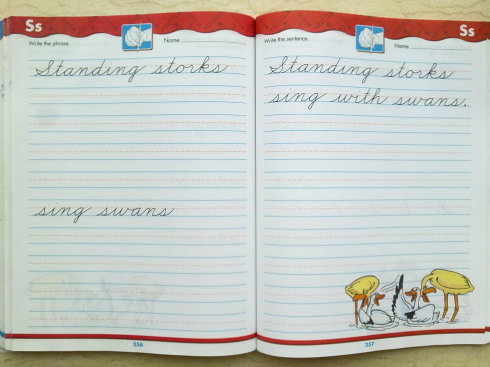 Ss
Write the phrase.
Name
Standing storks
sing swans
256
Ss
Write the sentence.
Name
Standing storks
sing with swans.
257